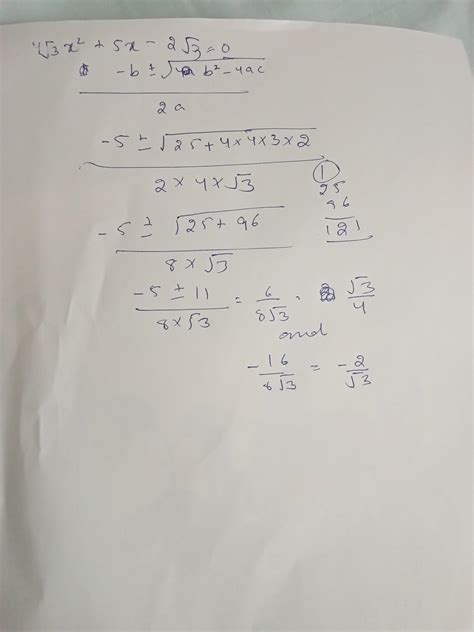 4√3x² + 5x - 2√3 = 0
-b ± √b² - 4ac
2a
-5 ± √25 + 4×4×3×2
2 × 4 × √3
1
25
96
121
-5 ± √25 + 96
8 × √3
-5 ± 11 / 8×√3 = 6 / 8√3 = √3 / 4
and
-16 / 8√3 = -2 / √3